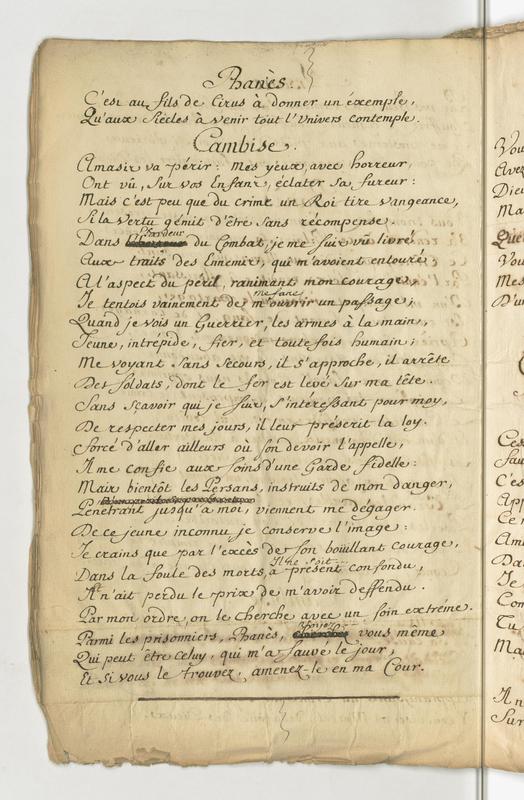 Phanès.
C'est au fils de Cirus à donner un éxemple,
Qu'aux Siècles à venir tout l'Univers contemple.
Cambise.
Amasis va périr: Mes yeux, avec horreur,
Ont vû, sur vos Enfans, éclater sa fureur:
Mais c'est peu que du Crime un Roi tire vangeance,
Si la Vertu gémit d'être sans récompense.
l'ardeur
Dans du Combat, je me suis vû livré
Aux traits des Ennemis, qui m'avoient entouré
A l'aspect du péril, ranimant mon courage,
me faire
Je tentois vainement de m'ouvrir un passage;
Quand je vois un Guerrier, les armes à la main,
Jeune, intrépide, fier, et toutefois humain;
Me voyant sans secours, il s'approche, il arrête
Des soldats, dont le fer est levé sur ma tête.
Sans sçavoir qui je suis, s'intéressant pour moy,
De respecter mes jours, il leur prescrit la loy.
Forcé d'aller ailleurs où son devoir l'appelle,
Il me confie aux soins d'une Garde fidelle:
Mais bientôt les Persans, instruits de mon danger,
Pénétrant jusqu'à moi, viennent me dégager.
De ce jeune inconnu je conserve l'image:
Je crains que par l'excès de son boüillant courage,
Il ne soit
Dans la foule des morts, à présent confondu,
Il n'ait perdu le prix de m'avoir deffendu.
Par mon ordre, on le cherche avec un soin extrême.
Parmi les prisonniers, Phanès, vous même
Qui peut être Celuy, qui m'a sauvé le jour,
Et si vous le trouvez, amenez-le en ma Cour.